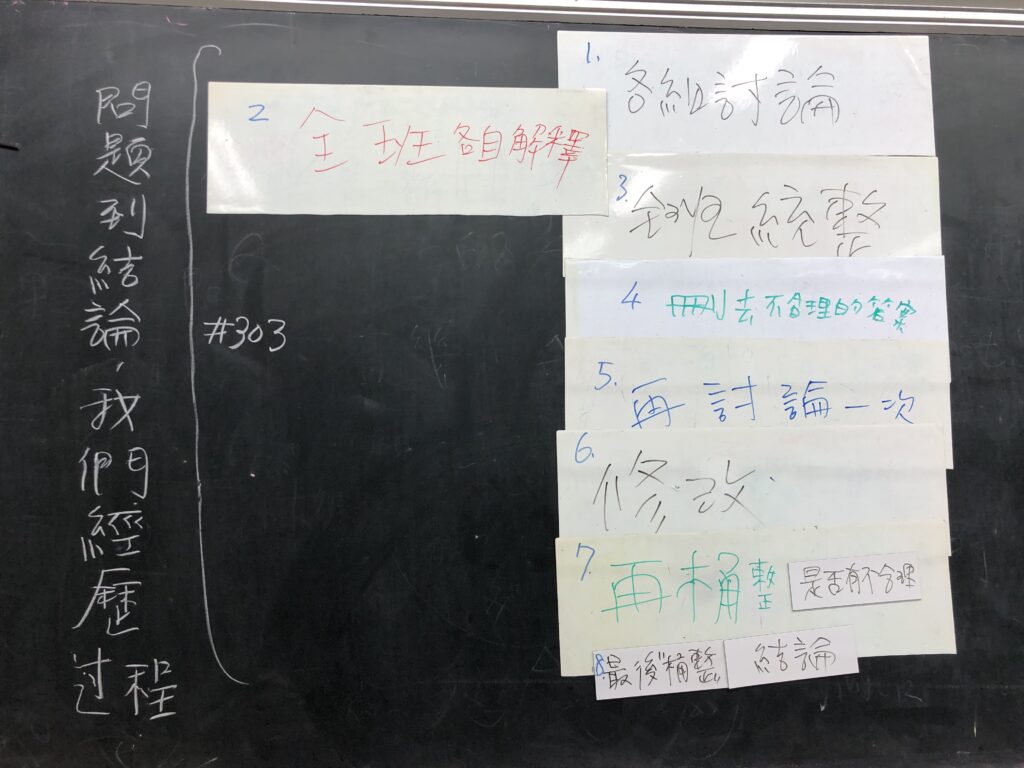 問題到結論,我們經歷过程
#303
1. 各組討論
2 全班各自解釋
3. 全班統整
4 刪去不合理的答案
5. 再討論一次
6. 修改
7. 再桶整 是否有不合理
8. 最後桶整 結論